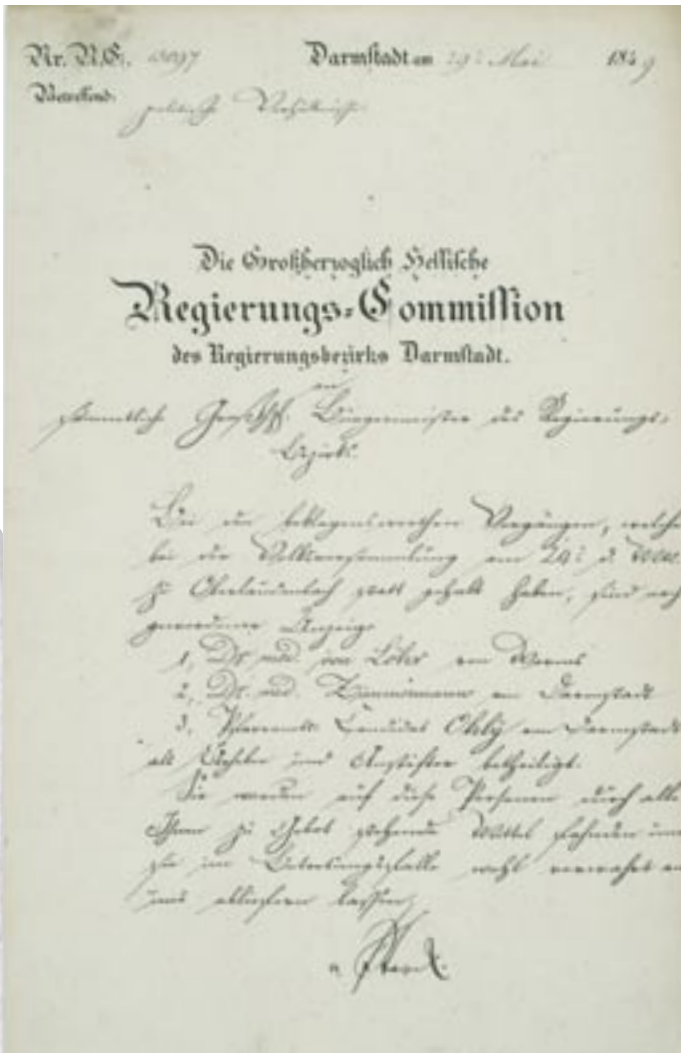 Nr. R.C. 10097 Darmstadt am 29t Mai 1849
Betreffend:
politische Verhältnisse
Die Großherzoglich Hessische
Regierungs-Commission
des Regierungsbezirks Darmstadt.
an
sämmtliche Großhzl. Bürgermeister des Regierungs-
bezirks.
Bei den beklagenswerthen Vorgängen, welche
bei der Volksversammlung am 24t d. Mts.
zu Oberlaudenbach statt gehabt haben, sind nach
gewordener Anzeige
1, Dr. med. von Löhr aus Worms
2, Dr. med. Zimmermann aus Darmstadt
3, Pfarramts Candidat Ohly aus Darmstadt
als Urheber und Anstifter betheiligt.
Sie werden auf diese Personen durch alle
Ihnen zu Gebot stehende Mittel fahnden und
sie im Betretungsfalle wohl verwahrt an
uns abliefern lassen.
v. Starck.